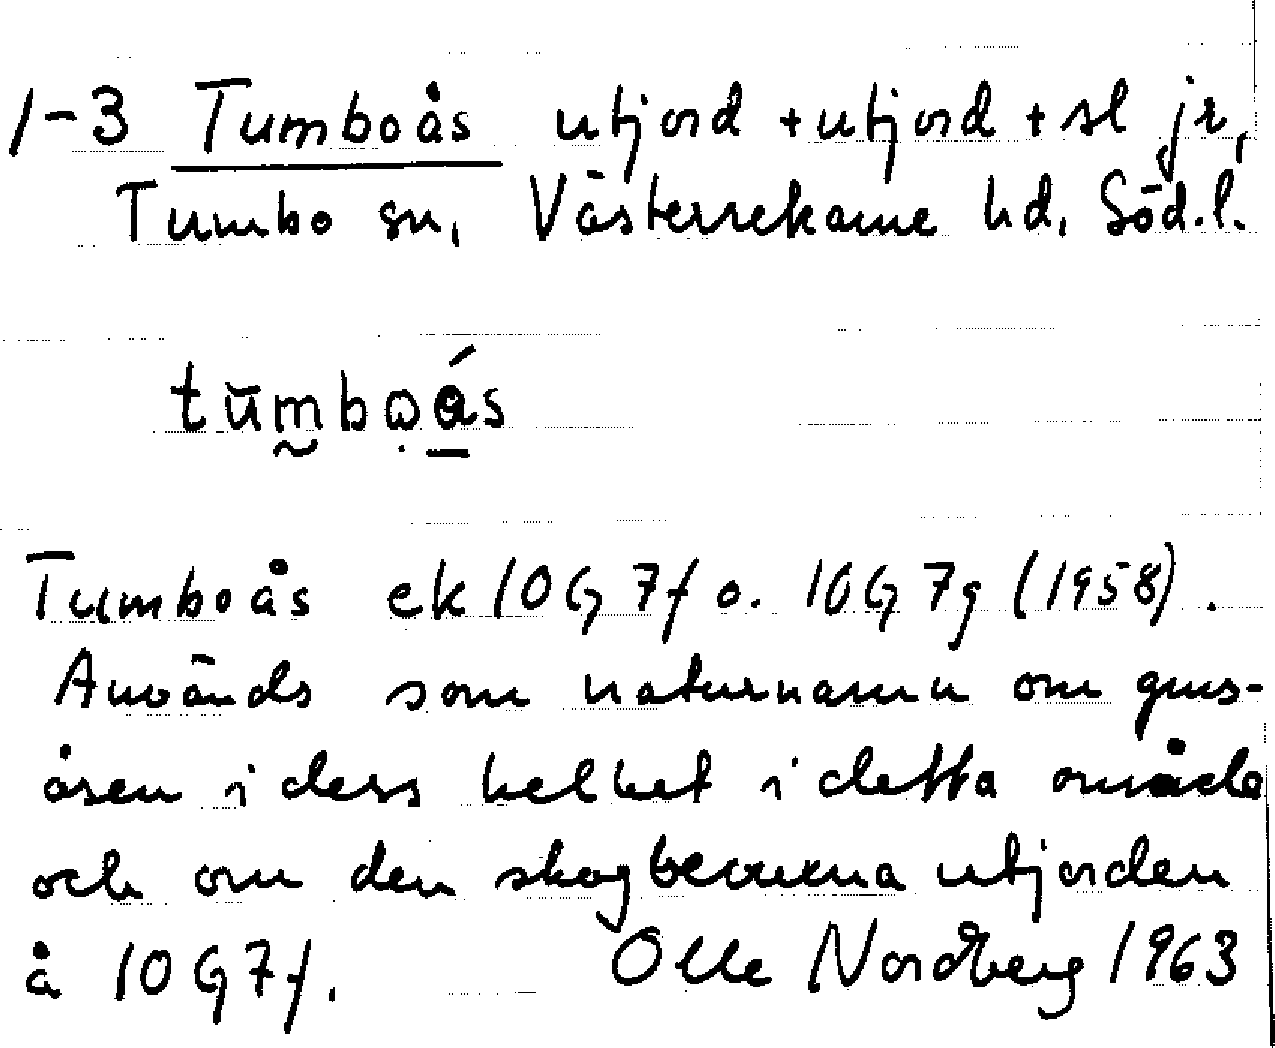 1-3 Tumboås utjord + utjord + sl jr,
Tumbo sn, Västerrekarne hd, Söd.l.
tŭm̰bọá̱s
Tumboås ek 10G7f o. 10G7g (1958).
Används som naturnamn om grus-
åsen i dess helhet i detta område
och om den skogbevuxna utjorden
å 10G7f. Olle Nordberg 1963